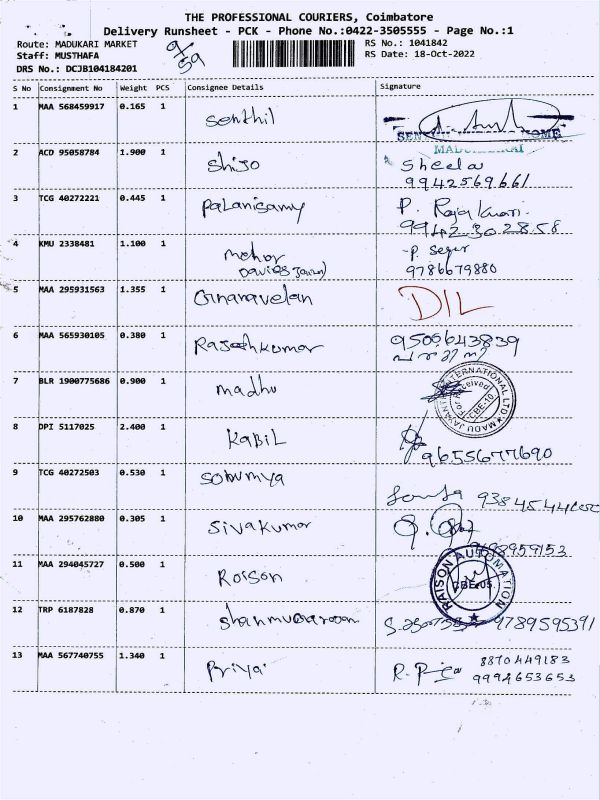 THE PROFESSIONAL COURIERS, Coimbatore
Delivery Runsheet - PCK - Phone No.:0422-3505555 - Page No.:1
Route: MADUKARI MARKET
RS No.: 1041842
Staff: MUSTHAFA
RS Date: 18-Oct-2022
DRS No.: DCJB104184201
9/59
S No Consignment No Weight PCS Consignee Details Signature
1 MAA 568459917 0.165 1 Senthil
2 ACD 95058784 1.900 1 Shijo Sheela
9942569661
3 TCG 40272221 0.445 1 Palanisamy P. Rajakumari.
9942302858
4 KMU 2338481 1.100 1
9786679880
5 MAA 295931563 1.355 1 Gnanavelan DIL
6 MAA 565930105 0.380 1 Rajeshkumar 9509643839
7 BLR 1900775686 0.900 1 madhu INTERNATIONAL LTD MADU For Received CBE-10
8 DPI 5117025 2.400 1 Kabil 9655677690
9 TCG 40272503 0.530 1 Sowmya
10 MAA 295762880 0.305 1 Sivakumar
959153
11 MAA 294045727 0.500 1 Roison RAISON AUTOMATION CBE-05.
12 TRP 6187828 0.870 1 9789595391
13 MAA 567740755 1.340 1 Priya R. Priya 8870449183
9994653653